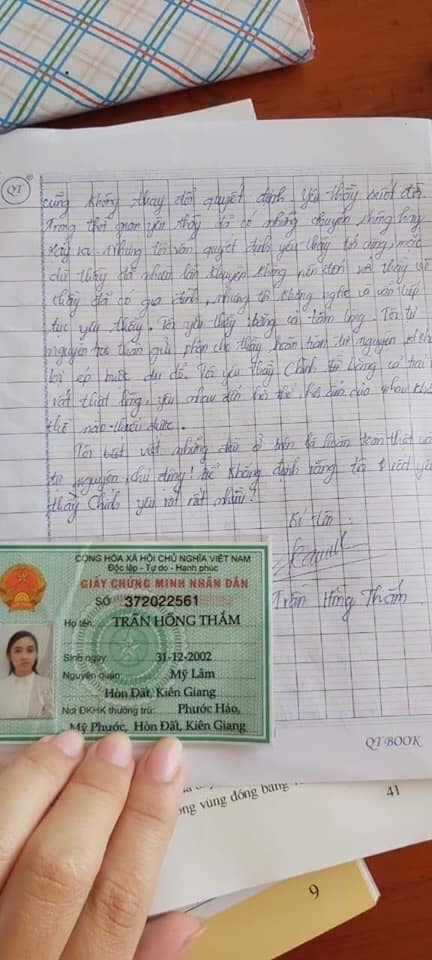 QT
cũng không thay đổi quyết định yêu thầy suốt đời.
Trong thời gian yêu thầy đã có những chuyện không hay
xảy ra nhưng tôi vẫn quyết định yêu thầy tới cùng, mặc
dù thầy đã nhiều lần khuyên không nên đến với thầy vì
thầy đã có gia đình, nhưng tôi không nghe và vẫn tiếp
tục yêu thầy. Tôi yêu thầy bằng cả tấm lòng. Tôi tự
nguyện thân gửi phận cho thầy hoàn toàn tự nguyện
bị ép buộc dụ dỗ. Tôi yêu thầy Chính tôi bằng cả trái
rất thật lòng, yêu nhau đến nỗi của nhau
thể nào thiếu được.
Tôi viết những chữ ở trên là hoàn toàn thật và
tự nguyện, chủ động! Để khẳng định rằng tôi
thầy Chính yêu rất rất nhiều!
Kí tên
Trần Hồng Thắm
CỘNG HÒA XÃ HỘI CHỦ NGHĨA VIỆT NAM
Độc lập - Tự do - Hạnh phúc
GIẤY CHỨNG MINH NHÂN DÂN
SỐ 372022561
Họ tên: TRẦN HỒNG THẮM
Sinh ngày 31-12-2002
Nguyên quán: Mỹ Lâm
Hòn Đất, Kiên Giang
Nơi ĐKHK thường trú: Phước Hảo,
Mỹ Phước, Hòn Đất, Kiên Giang
QT BOOK
vùng đồng bằng
41
9